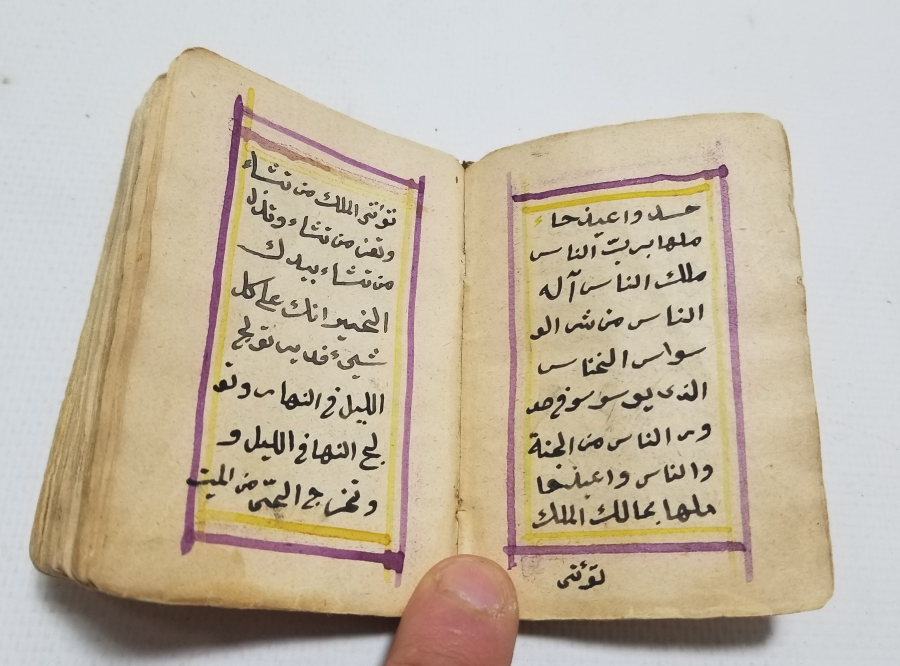 حسد واعيذ حا
ملها برب الناس
ملك الناس آله
الناس من شر الو
سواس الخناس
الذى يوسوسو فى صد
ور الناس من الجنة
والناس واعيذ حا
ملها بمالك الملك
تؤتى
تؤتى الملك من تشاء
وتعز من تشاء وتذل
من تشاء بيدك
الخير انك على كل
شىء قدير تولج
الليل فى النهار وتو
لج النها فى الليل و
وتخرج الحى من الميت